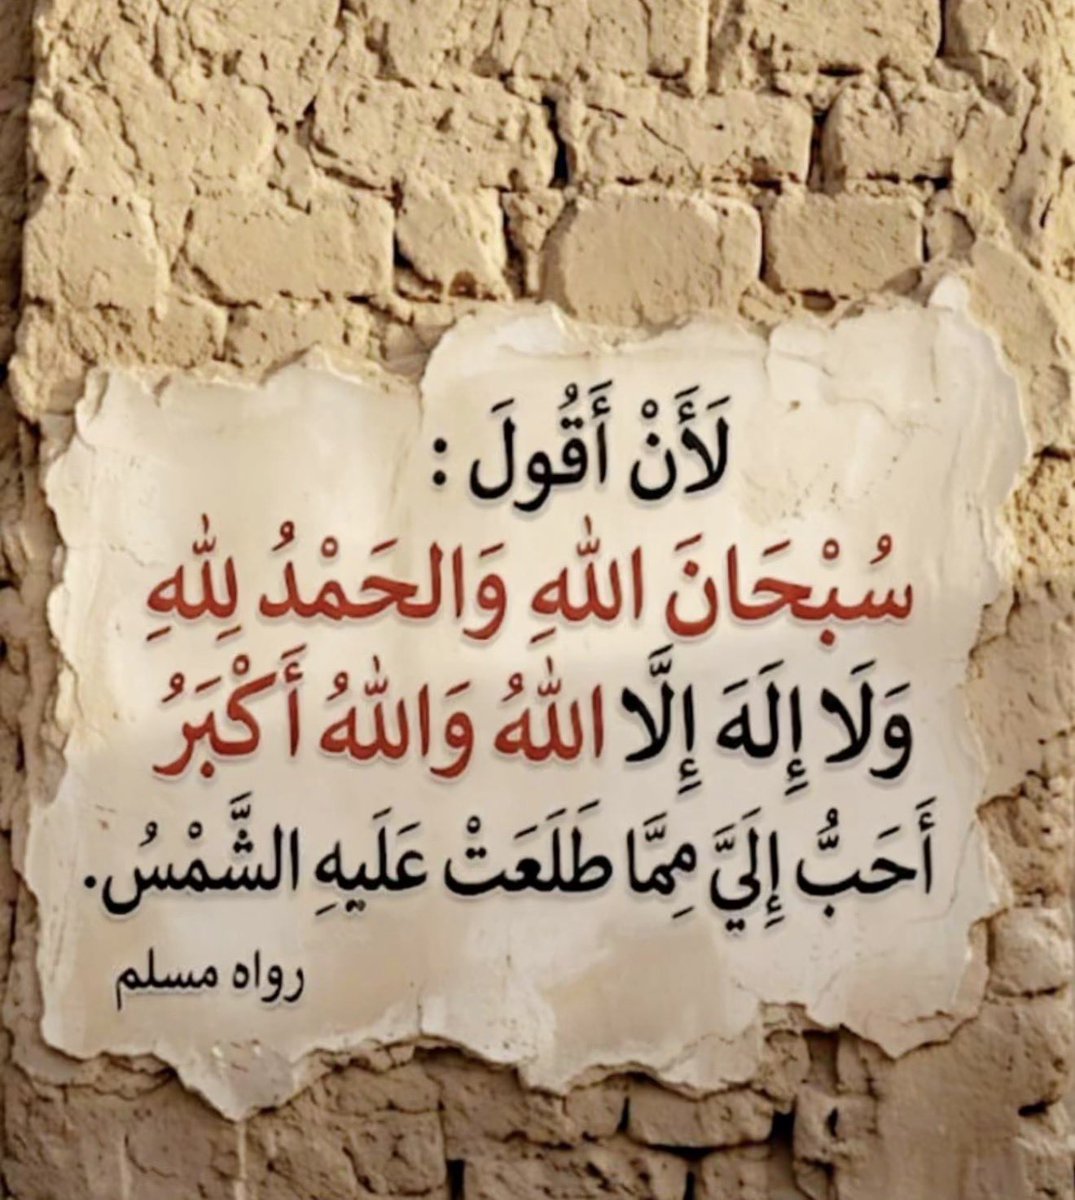 لَأَنْ أَقُولَ :
سُبْحَانَ اللهِ وَالحَمْدُ لِلهِ
وَلَا إِلَهَ إِلَّا اللهُ وَاللهُ أَكْبَرُ
أَحَبُّ إِلَيَّ مِمَّا طَلَعَتْ عَلَيهِ الشَّمْسُ.
رواه مسلم